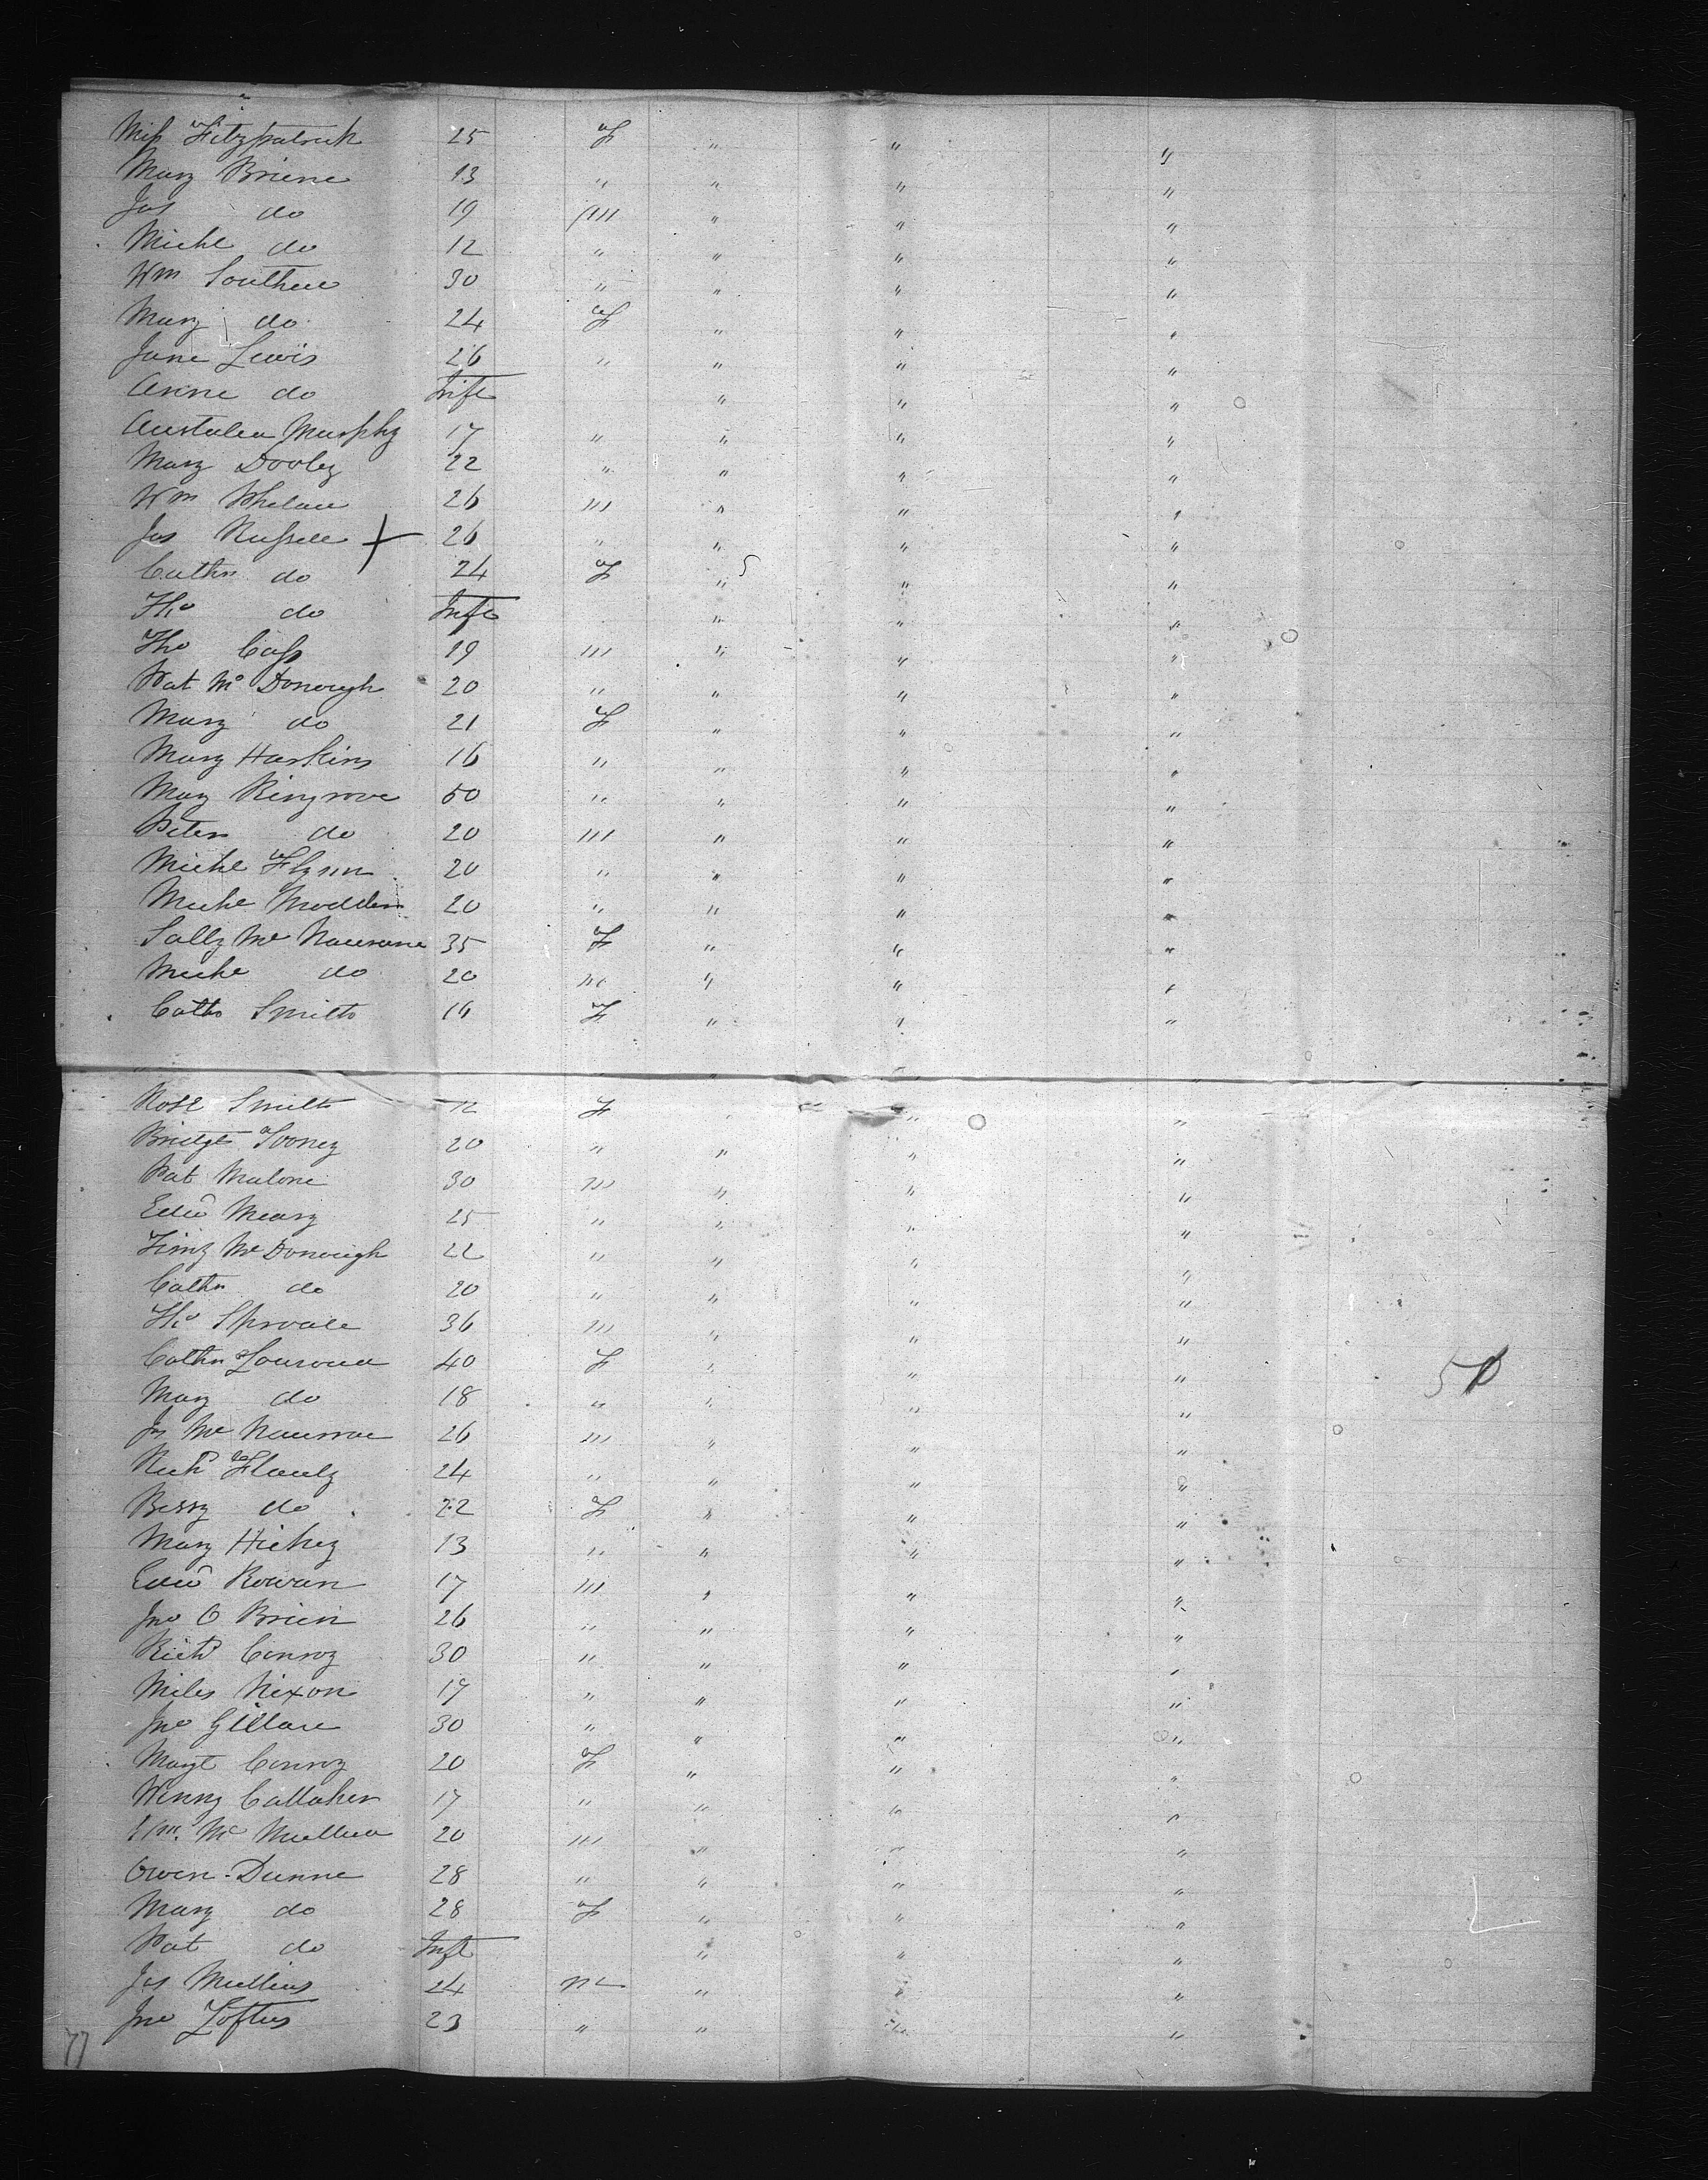 Miss Fitzpatrick 25 F " " "
Mary Briene 13 " " " "
Jas do 19 m " " "
Michl do 12 " " " "
Wm Southern 30 " " " "
Mary do 24 F " " "
Jane Lewis 26 " " " "
Anne do Inft " " "
Murphy 17 " " " "
Mary Dooley 22 " " " "
Wm Whelan 26 m " " "
Jas Russell + 26 " " " "
Cathn do 24 F " " "
Tho do Inft " " "
Tho Cass 19 m " " "
Pat McDonough 20 " " " "
Mary do 21 F " " "
Mary Harkins 16 " " " "
Mary Ringrove 50 " " " "
Peter do 20 m " " "
Michl Flynn 20 " " " "
Michl Madden 20 " " " "
Sally Mc 35 F " " "
Michl do 20 m " " "
Cath Smith 16 F " " "
Rose Smith 12 F " " "
Bridgt Tooney 20 " " " "
Pat Malone 30 m " " "
Edwd Meary 25 " " " "
Timy McDonough 22 " " " "
Cathn do 20 " " " "
Tho Sproale 36 m " " "
Cathn 40 F " " "
Mary do 18 " " " "
Js Mc 26 m " " "
Richd 24 " " " "
Bessy do 22 F " " "
Mary Hickey 13 " " " "
Edwd Rowan 17 m " " "
Jno O Brien 26 " " " "
Richd Conroy 30 " " " "
Miles Nixon 17 " " " "
Jno Gillan 30 " " " "
Margt Conroy 20 F " " "
Winny Callaher 17 " " " "
Mc 20 m " " "
Owen Dunne 28 " " " "
Mary do 28 F " " "
Pat do Inft " " "
Jas Mullins 24 m " " "
Jno Loftus 23 " " " "
77